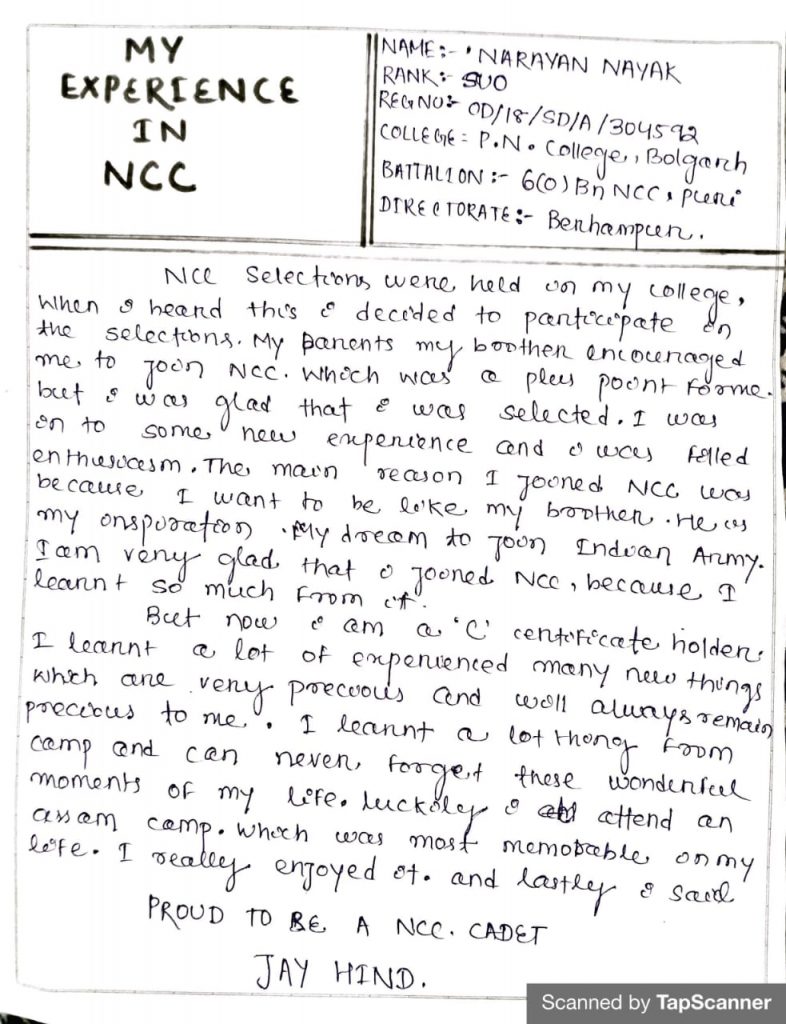 MY
EXPERIENCE
IN
NCC
NAME:- 'NARAYAN NAYAK
RANK:- SUO
REGNO:- OD/18/SD/A/304592
COLLEGE: P.N. College, Bolgarh
BATTALION:- 6(O)Bn NCC, Puri
DIRECTORATE:- Berhampur.
NCC Selections were held in my college,
When i heard this i decided to participate in
the selections. My parents my boother encouraged
me to join NCC. Which was a plus point forme.
but i was glad that i was selected. I was
in to some new experience and i was filled
enthusicasm. The main reason I joined NCC was
because I want to be like my boother. He is
my inspiration. My dream to join Indian Army.
I am very glad that i joined NCC, because I
learnt so much from it.
But now i am a 'C' certificate holder.
I learnt a lot of experienced many new things
which are very precious and will always remain
precious to me. I learnt a lot thing from
camp and can never forget these wonderful
moments of my life. luckily i attend an
assam camp. which was most memorable in my
life. I really enjoyed it. and lastly i said
PROUD TO BE A NCC. CADET
JAY HIND.
Scanned by TapScanner